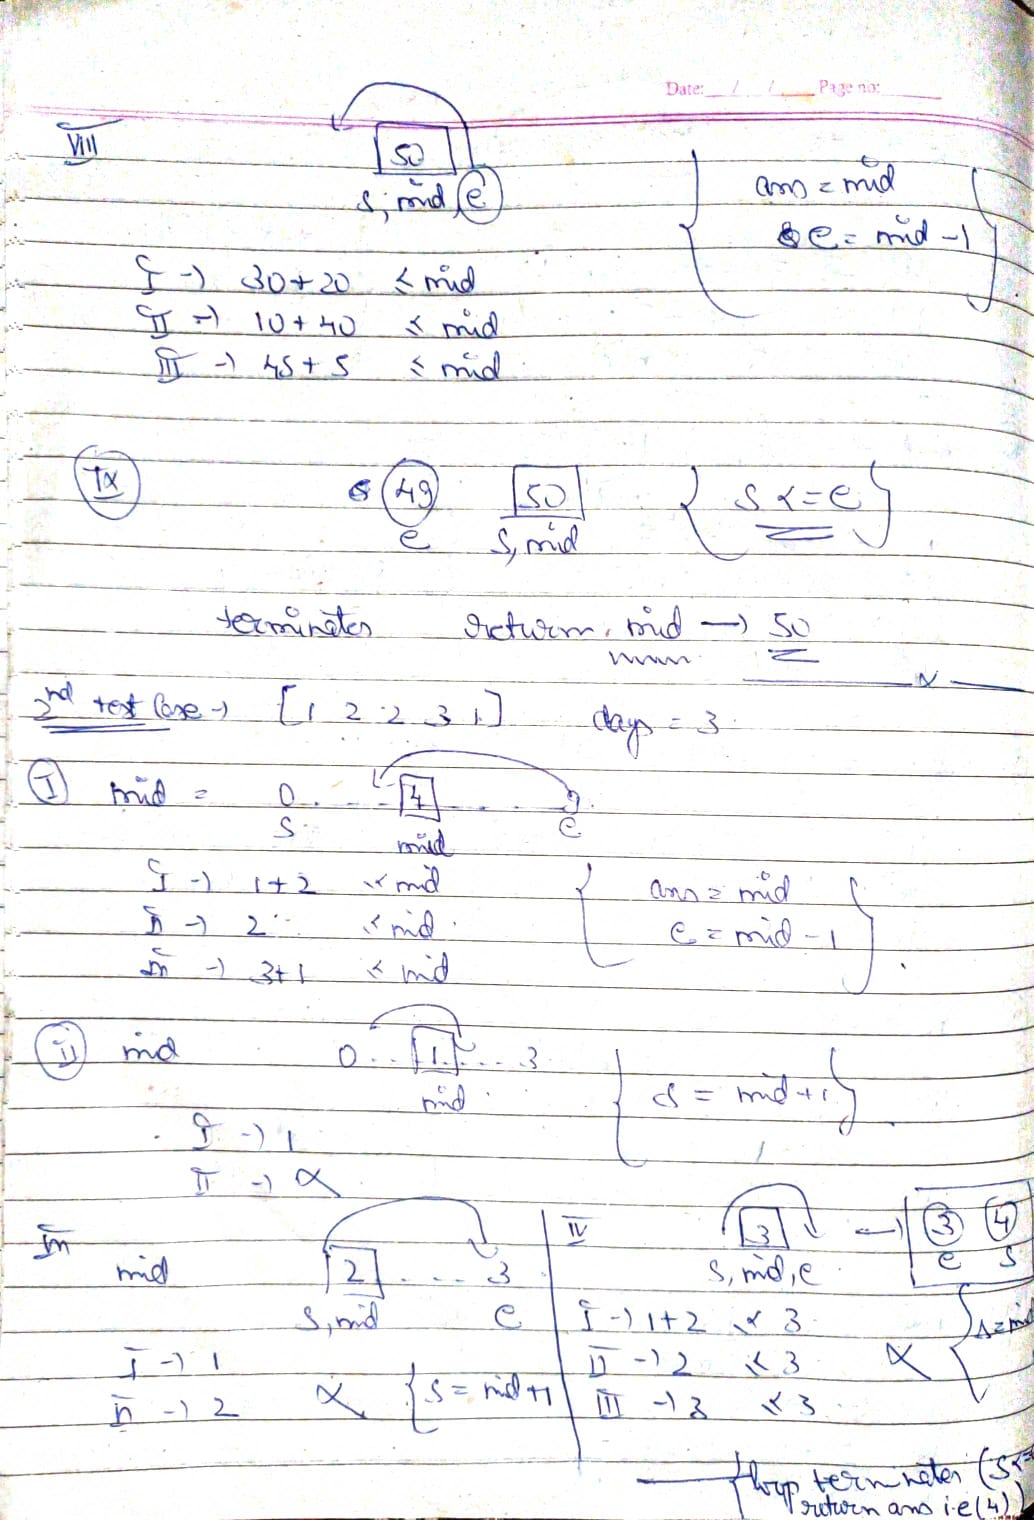 Date: __/__/__ Page no: ____
VIII
50
s, mid, e
ans = mid
e = mid - 1
I → 30+20 ≤ mid
II → 10+40 ≤ mid
III → 45+5 ≤ mid
IX
49 50
e s, mid
s <= e
terminates return mid → 50
x
2nd test Case → [1 2 2 3 1] days = 3
I mid = 0 . . . . 4 . . . . 9
s mid e
I → 1+2 ≤ mid
II → 2 ≤ mid
III → 3+1 ≤ mid
ans = mid
e = mid - 1
II mid 0 . . 1 . . . 3
mid
s = mid+1
I → 1
II → x
III
mid 2 . . . . 3
s, mid e
I → 1
II → 2 x s = mid+1
IV 3 → 3 4
s, mid, e e s
I → 1+2 ≤ 3
II → 2 ≤ 3
III → 3 ≤ 3
x
loop terminates (s<=
return ans i.e (4))